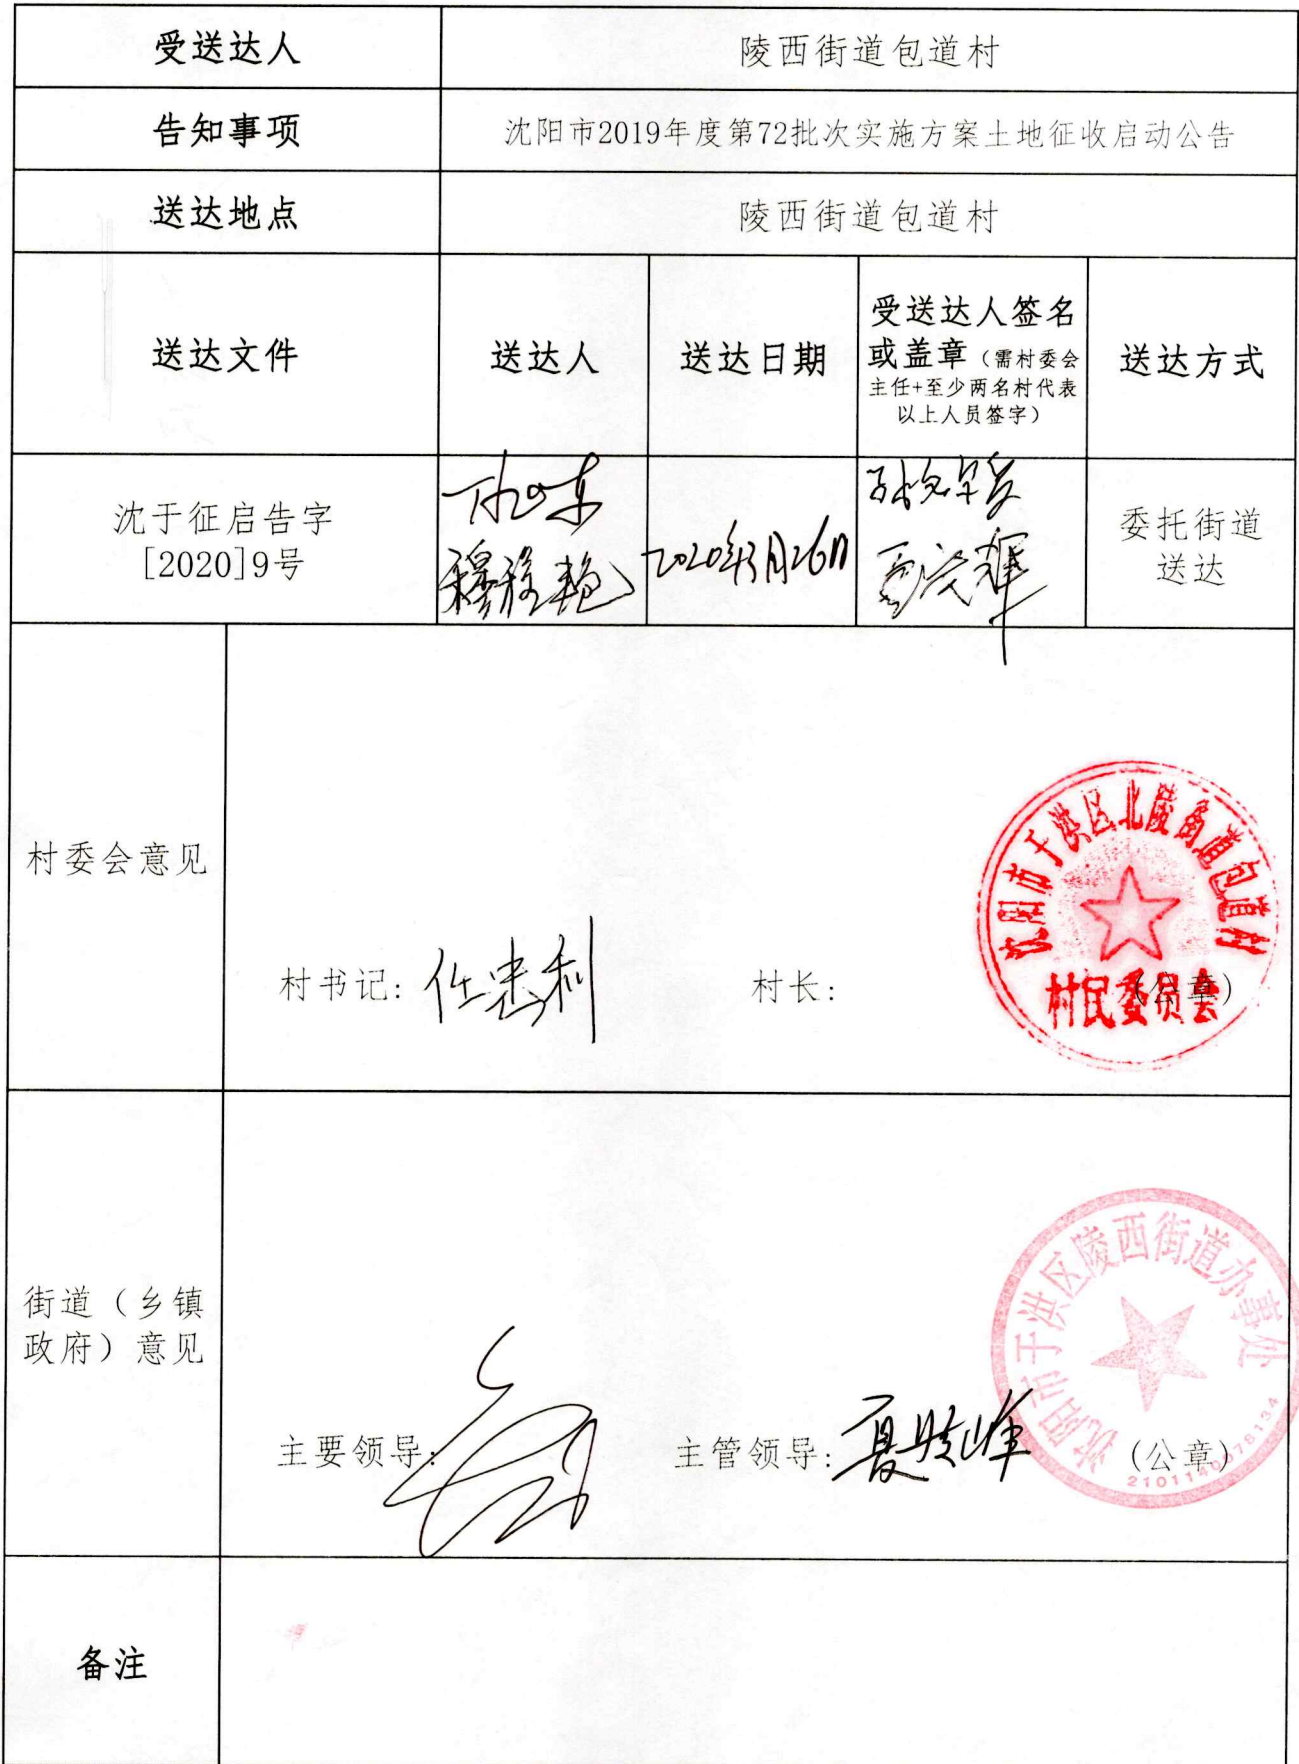 受送达人
陵西街道包道村
告知事项
沈阳市2019年度第72批次实施方案土地征收启动公告
送达地点
陵西街道包道村
送达文件
送达人
送达日期
受送达人签名
或盖章（需村委会
主任+至少两名村代表
以上人员签字）
送达方式
沈于征启告字
[2020]9号
穆稚艳
2020年3月26日
委托街道
送达
村委会意见
村书记：任忠利
村长：
（公章）
沈阳市于洪区北陵街道包道村
村民委员会
街道（乡镇
政府）意见
主要领导：
主管领导：夏晓峰
（公章）
沈阳市于洪区陵西街道办事处
2101140078134
备注